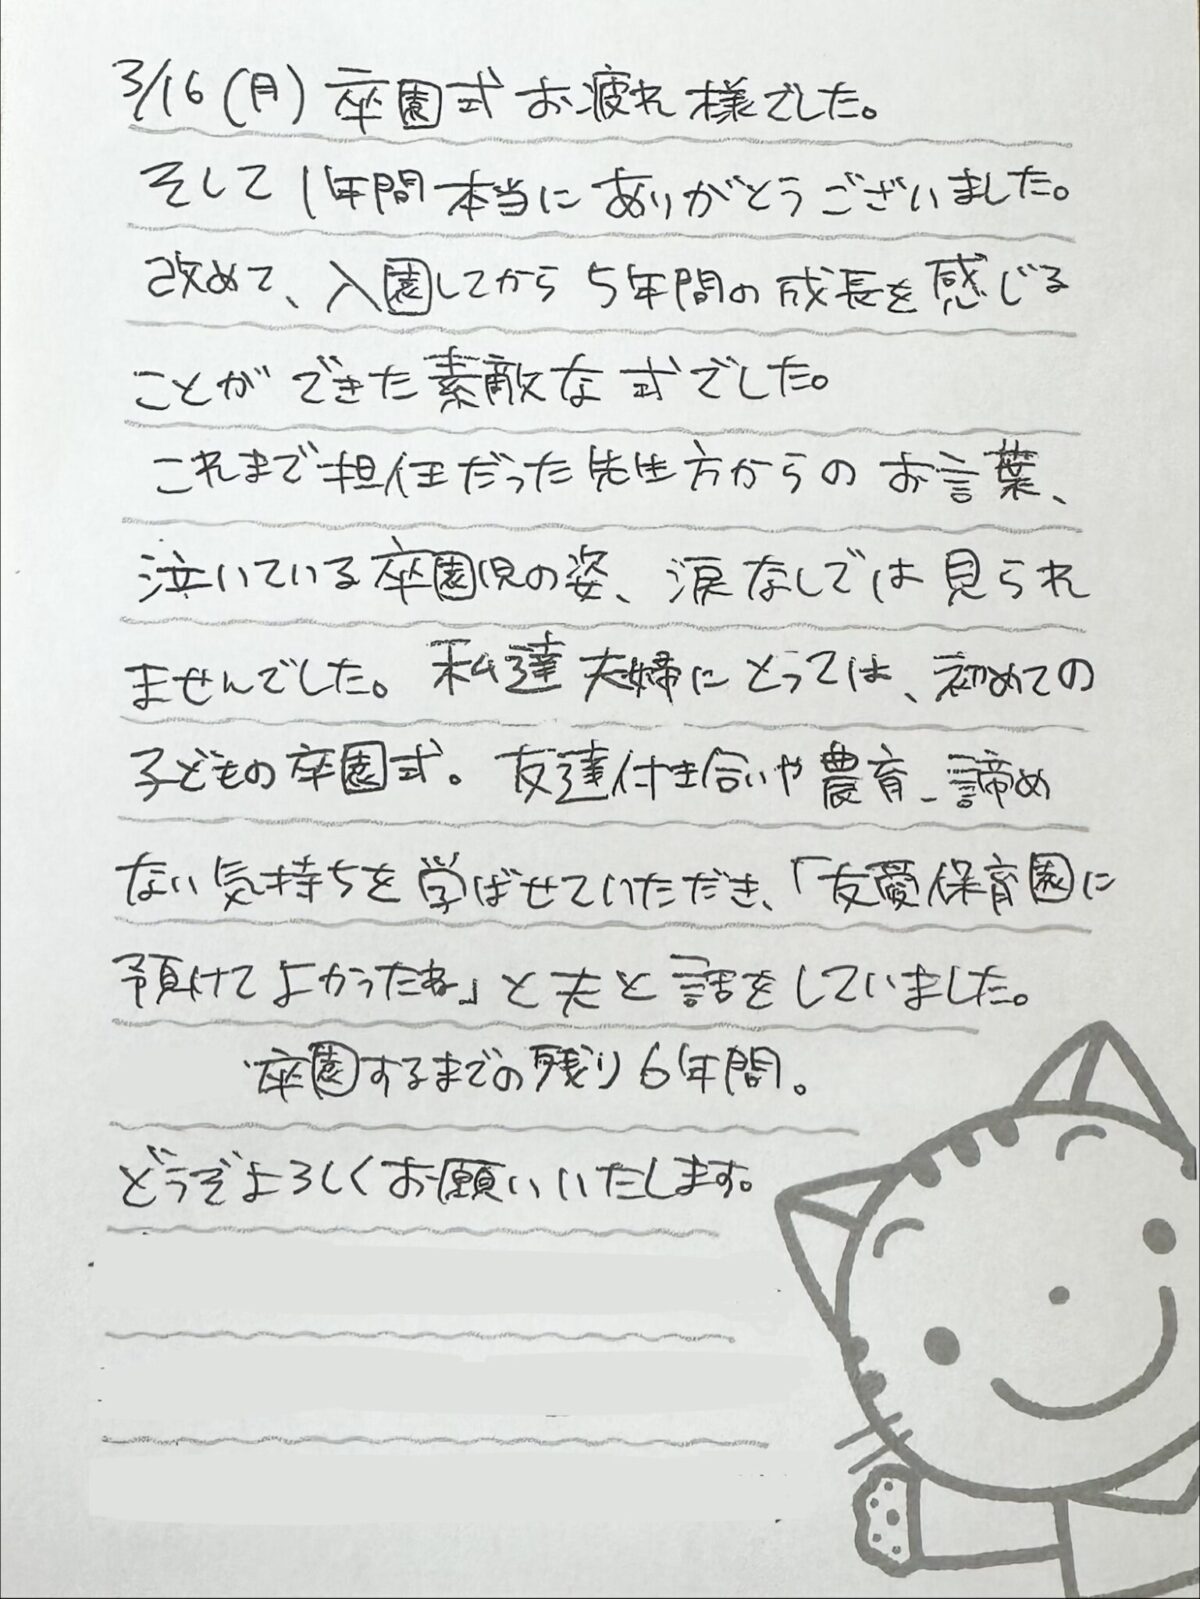 3/16(月)卒園式お疲れ様でした。
そして1年間本当にありがとうございました。
改めて、入園してから5年間の成長を感じる
ことができた素敵な式でした。
これまで担任だった先生方からのお言葉、
泣いている卒園児の姿、涙なしでは見られ
ませんでした。私達夫婦にとっては、初めての
子どもの卒園式。友達付き合いや農育、諦め
ない気持ちを学ばせていただき、「友愛保育園に
預けてよかったね」と夫と話をしていました。
卒園するまでの残り6年間。
どうぞよろしくお願いいたします。